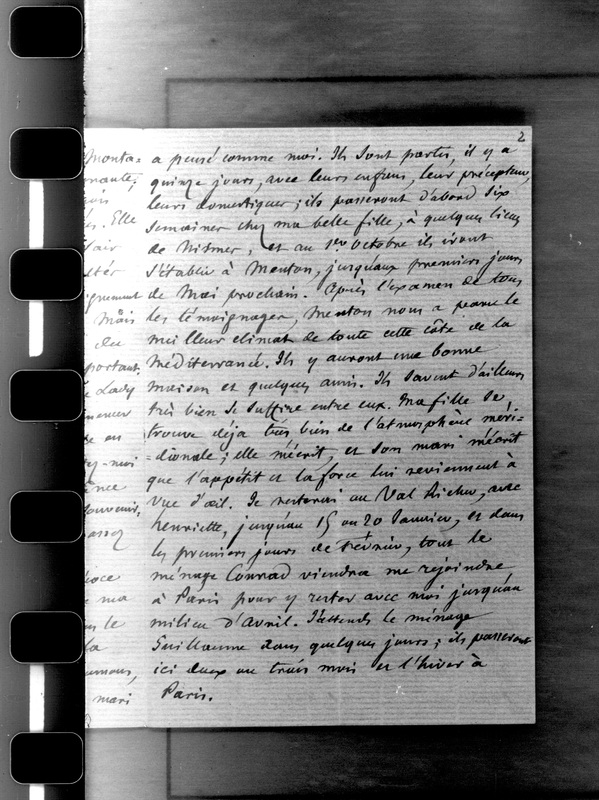 2
monta=
Elle
l'air
Mais
du
portant.
Lady
en
moi
souvenir,
assez
ma
le
la
mari
a pensé comme moi. Ils sont partis, il y a
quinze jours, avec leurs enfans, leur précepteur,
leurs domestiques ; ils passeront d'abord six
semaines chez ma belle fille, à quelques lieues
de Nismes, et au 1er octobre ils iront
s'établir à Menton, jusqu'aux premiers jours
de Mai prochain. Après l'examen de tous
les témoignages, Menton nous a paru le
meilleur climat de toute cette côte de la
Méditerranée. Ils y auront une bonne
maison et quelques amis. Ils savent d'ailleurs
très bien se suffire entre eux. Ma fille se
trouve déja très bien de l'atmosphère méri=
dionale ; elle m'écrit, et son mari m'écrit
que l'appétit et la force lui reviennent à
vue d'œil. Je resterai au Val Richer, avec
henriette, jusqu'au 15 ou 20 Janvier, et dans
les premiers jours de Février, tout le
ménage Conrad viendra me rejoindre
à Paris pour y rester avec moi jusqu'au
milieu d'avril. J'attends le ménage
Guillaume dans quelques jours ; ils passeront
ici deux ou trois mois et l'hiver à
Paris.